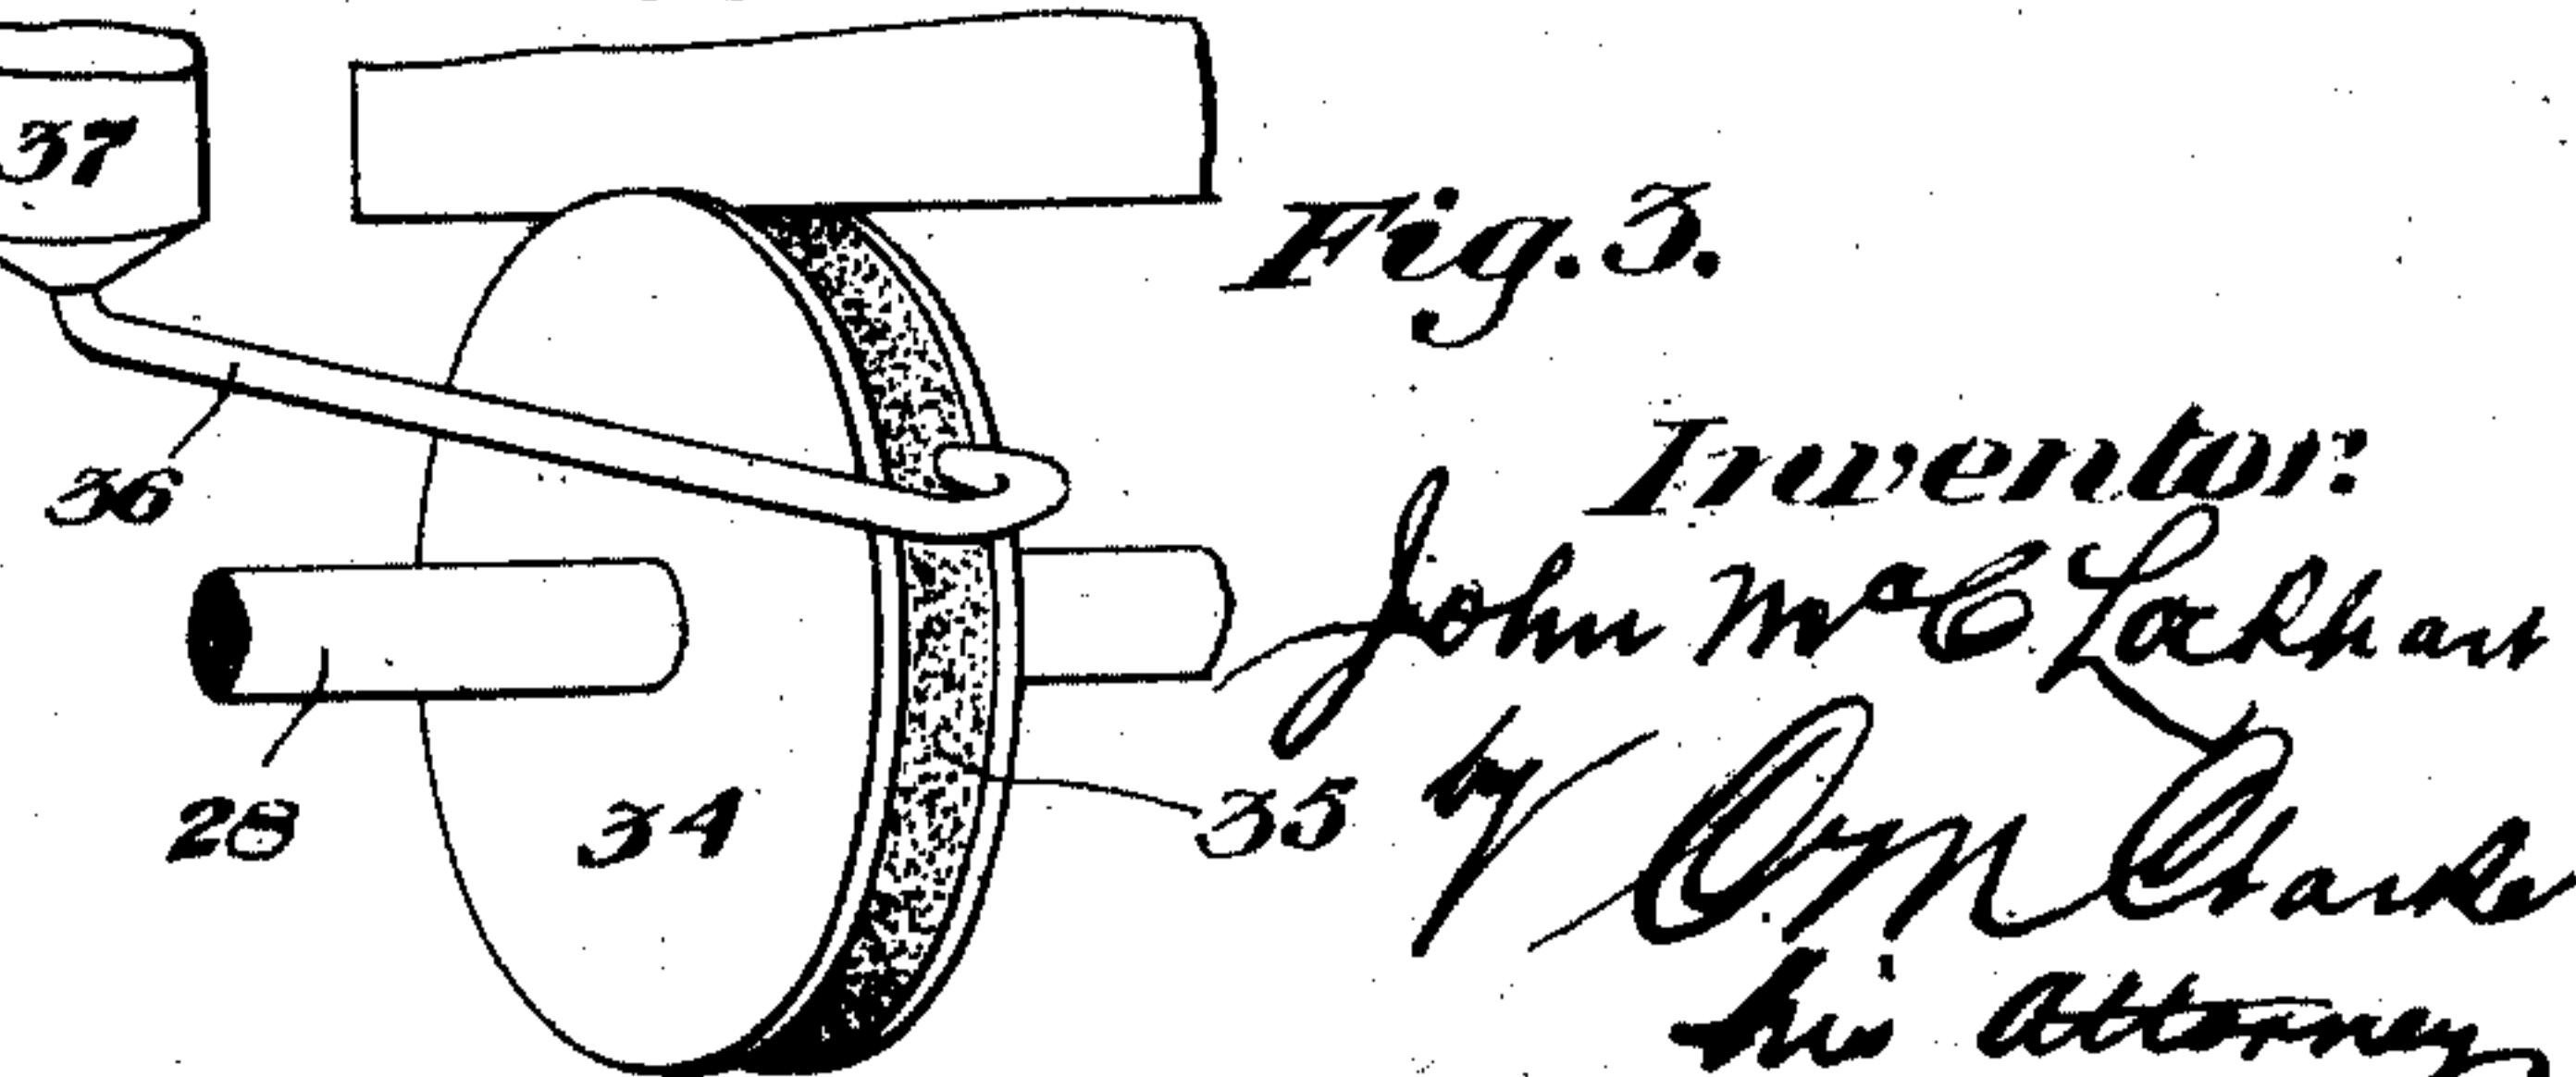 37
Fig. 3.
36
Inventor:
John McC Lockhart
28
34
35
by C. M. Clarke
his attorney